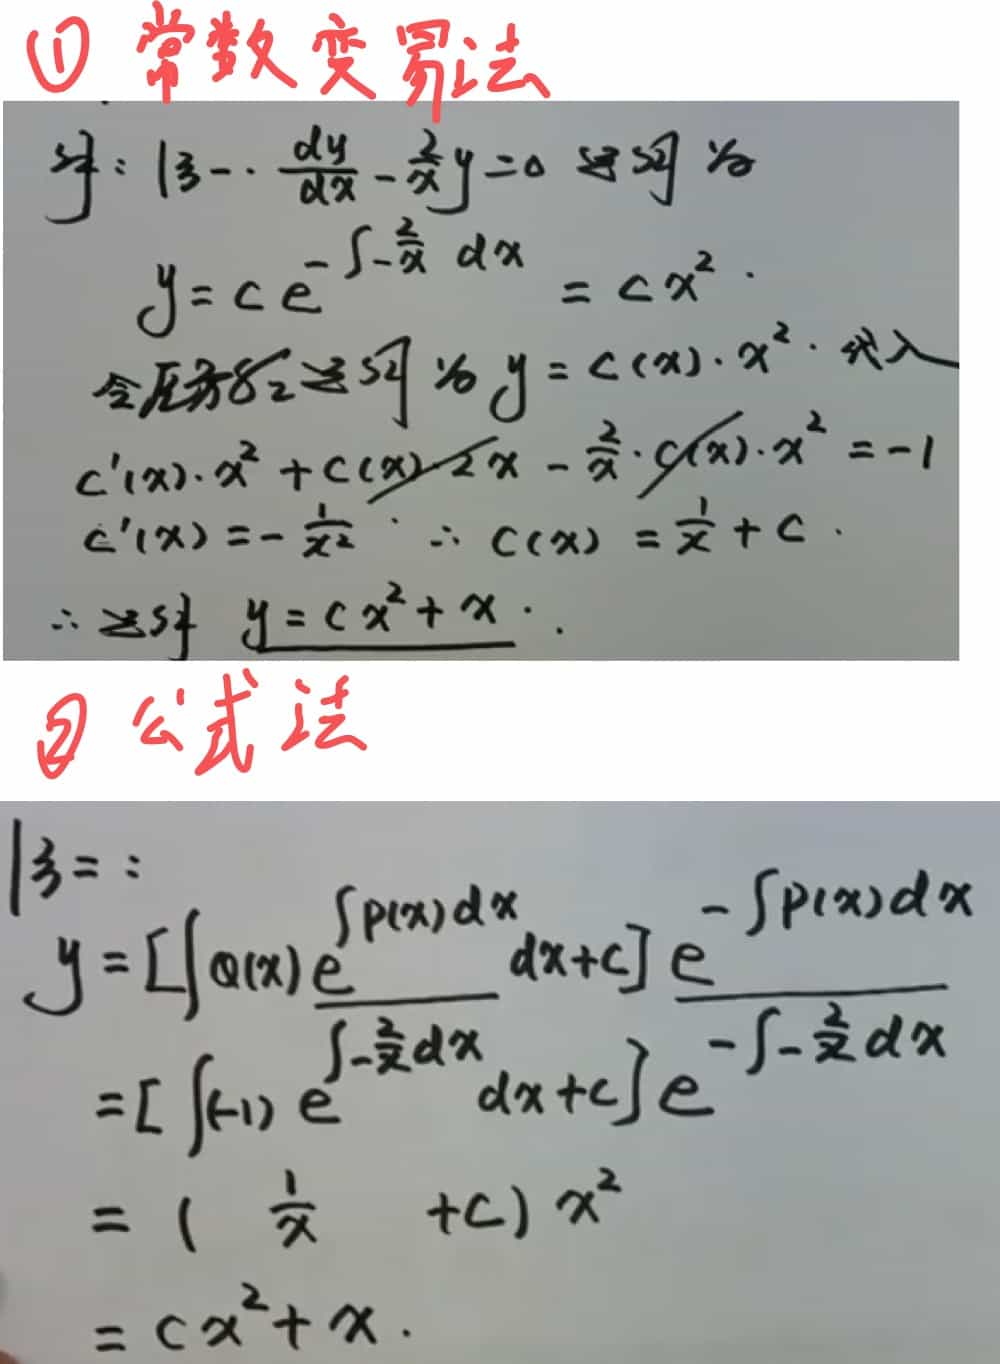 ① 常数变易法
解：阶一. dy/dx - 2/x y = 0 通解为
y = c e^{-∫-2/x dx} = cx².
令原方程通解为 y = c(x)·x². 代入
c'(x)·x² + c(x)·2x - 2/x·c(x)·x² = -1
c'(x) = -1/x² ∴ c(x) = 1/x + c.
∴ 通解 y = cx² + x.
② 公式法
阶二：
y = [∫Q(x)e^{∫p(x)dx} dx+c] e^{-∫p(x)dx}
= [∫(-1) e^{∫-2/x dx} dx+c] e^{-∫-2/x dx}
= ( 1/x +c) x²
= cx² + x.